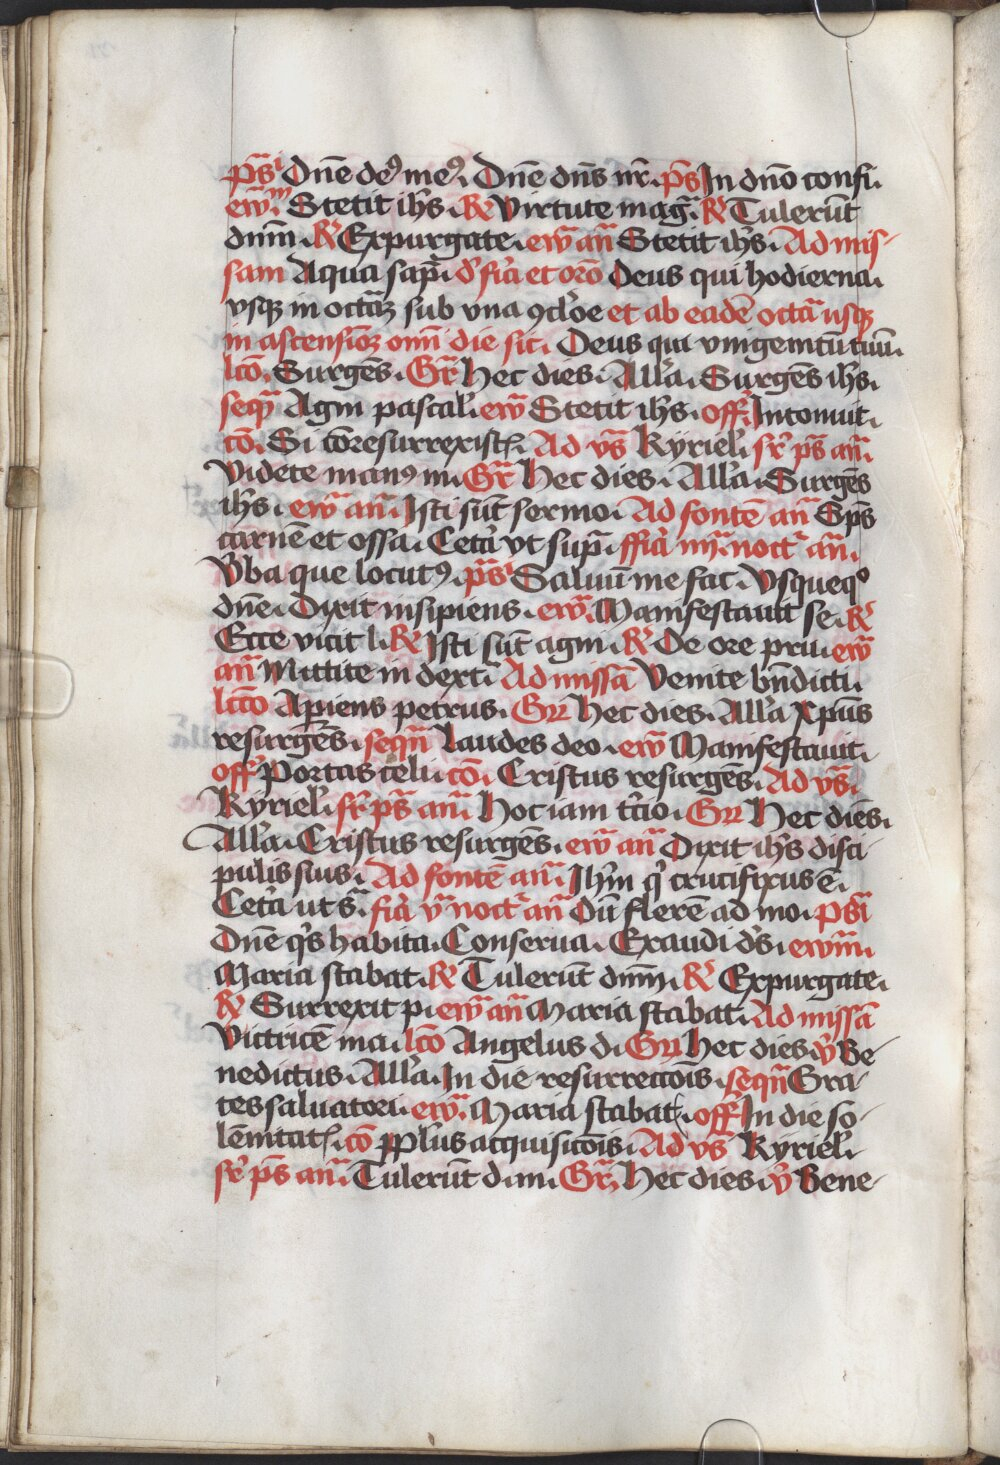 ps̄i Dn̄e deꝰ meꝰ. Dn̄e dn̄s nr̄. ps̄ In dn̄o confi.
ew̄m. Stetit ih̄s. R̷ Virtute maḡ. R̷ Tulerūt
dnm̄. R̷ Expurgate. ew̄ an̄ Stetit ih̄s. Ad mis-
sam Aqua sap̄. d' fīa et orō Deus qui hodierna.
vsqꝫ in octāꝫ sub vna ꝯclōe et ab eadē octā usqꝫ
in ascensiōꝫ om̄i die sit. Deus qui vnigenitū tuū.
lcō. Surgēs. Gr̄ Hec dies. All'a. Surgēs ih̄s.
seqn̄ Agni pascal'. ew̄ Stetit ih̄s. off. Intonuit.
cō. Si cōresurrexistꝭ Ad vs̄ Kyriel'. sr̄ ps̄ an̄.
Videte manꝰ m. Gr̄ Hec dies. All'a. Surgēs
ih̄s. ew̄ an̄. Isti sūt sermo. Ad fontē an̄ Sp̄s
carnē et ossa. Cetā vt sup̄. ffīa iiij. noct' an̄.
V̄ba que locutꝰ. ps̄i Saluū me fac. Vsqueqo
dn̄e. Dixit insipiens. ew̄. Manifestauit se. R̷
Ecce vicit l. R̷ Isti sūt agni. R̷ De ore pru. ew̄
an̄ Mittite in dext̄ Ad missā Venite bn̄dicti.
lcc̄o Aꝑiens petrus. Gr̄ Hec dies. All'a Xp̄us
resurgēs. seqn̄ Laudes deo. ew̄ Manifestauit.
off. Portas celi. cō. Cristus resurgēs. Ad vs̄.
Kyriel'. sr̄ ps̄ an̄. Hoc iam t'cio. Gr̄ Hec dies.
All'a. Cristus resurgēs. ew̄ an̄ Dixit ih̄s disci-
pulis suis. Ad fontē an̄. Ihm̄ q' crucifixus ē.
Cetā ut s̄. fīa v̄ noct' an̄ Dū flerē ad mo. ps̄i
Dn̄e q's habita. Conserua. Exaudi d's. ewm̄.
Maria stabat. R̷ Tulerūt dnm̄. R̷ Expurgate.
R̷ Surrexit p. ew̄ an̄ Maria stabat. Ad missā
Victricē ma. lcō Angelus d. Gr̄ Hec dies. v̷ Be-
nedictus. All'a. In die resurreccōis. seqn̄ Gra-
tes saluatori. ew̄. Maria stabat. off. In die so-
lēnitatꝭ. cō Pp̄lus acquisicōis. Ad vs̄ Kyriel'.
sr̄ ps̄ an̄. Tulerūt d. m. Gr̄. Hec dies. v̷ Bene-